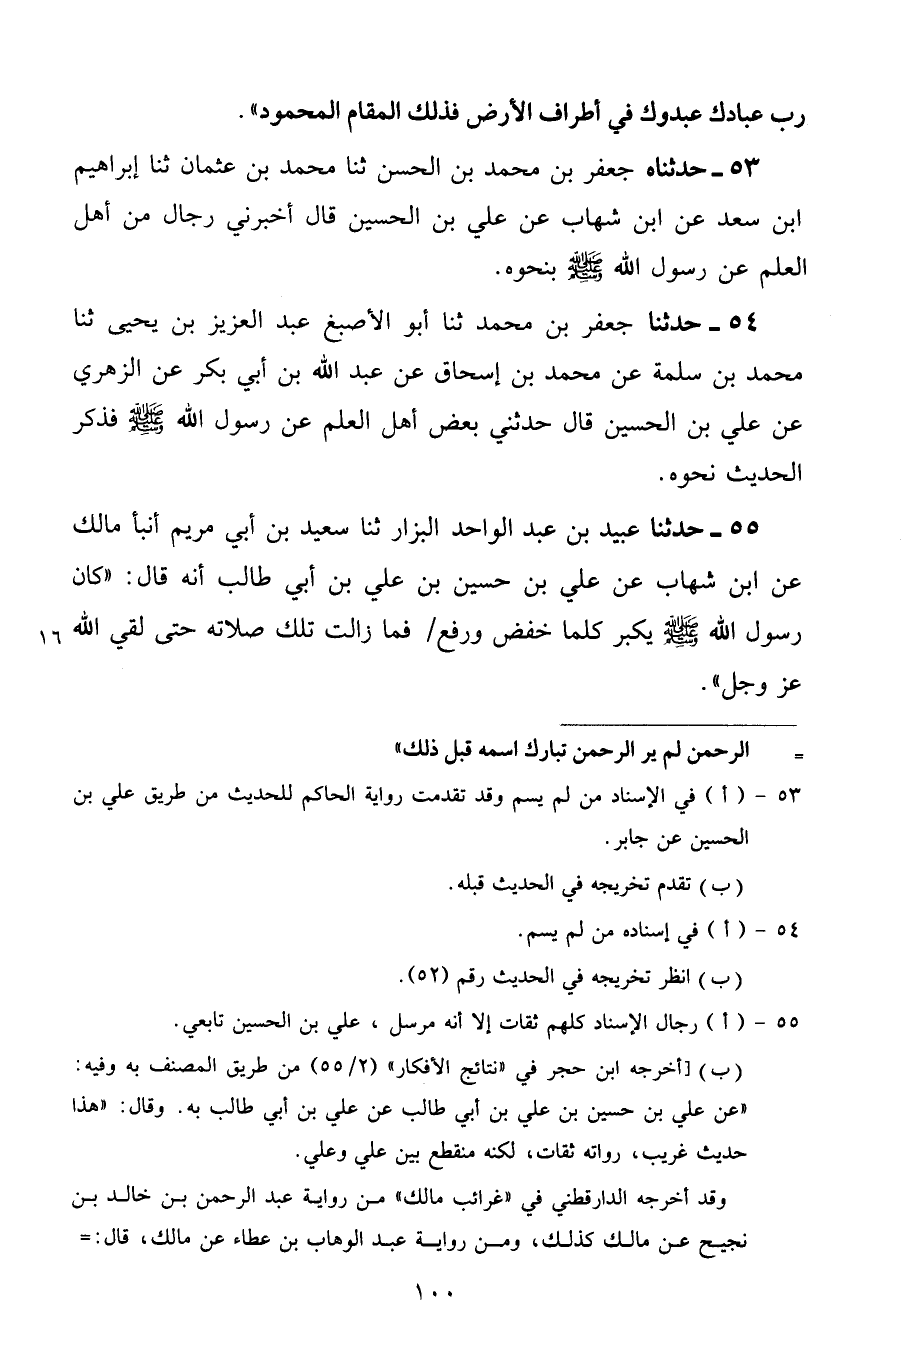 رب عبادك عبدوك في أطراف الأرض فذلك المقام المحمود» .
٥٣ ـ حدثناه جعفر بن محمد بن الحسن ثنا محمد بن عثمان ثنا إبراهيم
ابن سعد عن ابن شهاب عن علي بن الحسين قال أخبرني رجال من أهل
العلم عن رسول الله ﷺ بنحوه.
٥٤ ـ حدثنا جعفر بن محمد ثنا أبو الأصبغ عبد العزيز بن يحيى ثنا
محمد بن سلمة عن محمد بن إسحاق عن عبد الله بن أبي بكر عن الزهري
عن علي بن الحسين قال حدثني بعض أهل العلم عن رسول الله ﷺ فذكر
الحديث نحوه.
٥٥ ـ حدثنا عبيد بن عبد الواحد البزار ثنا سعيد بن أبي مريم أنبأ مالك
عن ابن شهاب عن علي بن حسين بن علي بن أبي طالب أنه قال: «كان
رسول الله ﷺ يكبر كلما خفض ورفع/ فما زالت تلك صلاته حتى لقي الله ١٦
عز وجل».
= الرحمن لم ير الرحمن تبارك اسمه قبل ذلك»
٥٣ - ( أ ) في الإسناد من لم يسم وقد تقدمت رواية الحاكم للحديث من طريق علي بن
الحسين عن جابر.
(ب) تقدم تخريجه في الحديث قبله.
٥٤ - ( أ ) في إسناده من لم يسم.
(ب) انظر تخريجه في الحديث رقم (٥٢).
٥٥ - ( أ ) رجال الإسناد كلهم ثقات إلا أنه مرسل ، علي بن الحسين تابعي.
(ب) [أخرجه ابن حجر في «نتائج الأفكار» (٥٥/٢) من طريق المصنف به وفيه:
«عن علي بن حسين بن علي بن أبي طالب عن علي بن أبي طالب به. وقال: «هذا
حديث غريب، رواته ثقات، لكنه منقطع بين علي وعلي.
وقد أخرجه الدارقطني في «غرائب مالك» من رواية عبد الرحمن بن خالد بن
نجيح عن مالك كذلك، ومن رواية عبد الوهاب بن عطاء عن مالك، قال: =
١٠٠